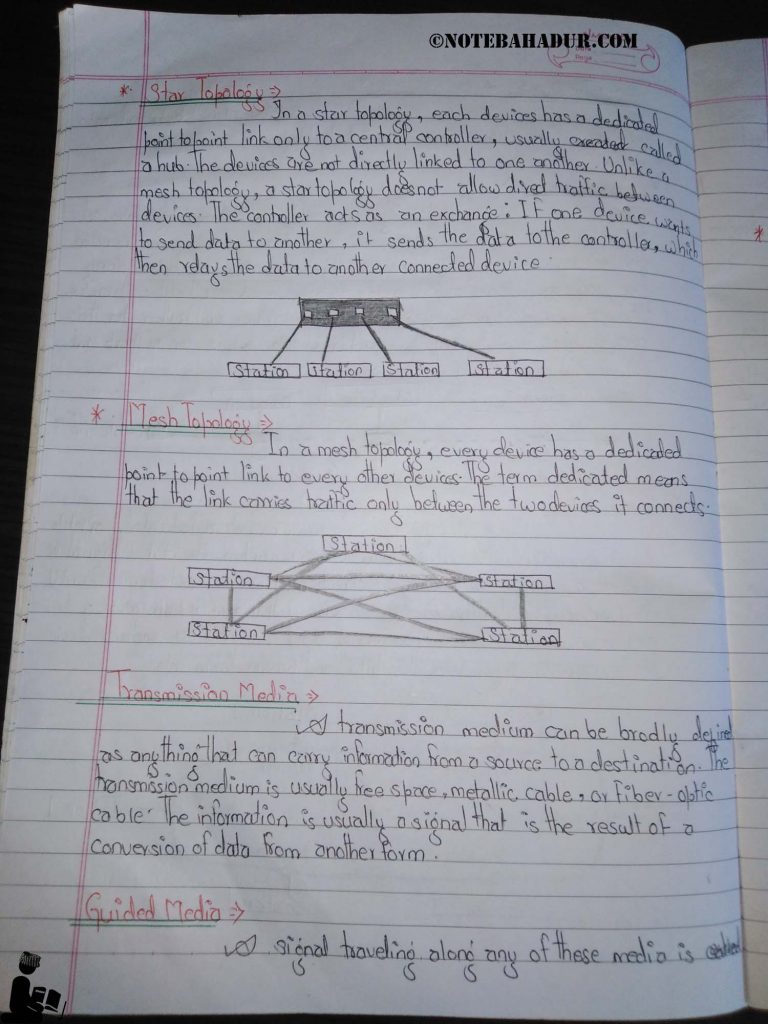 ©NOTEBAHADUR.COM
* Star Topology ⇒
In a star topology, each devices has a dedicated
point to point link only to a central controller, usually called
a hub. The devices are not directly linked to one another. Unlike a
mesh topology, a star topology does not allow direct traffic between
devices. The controller acts as an exchange: If one device wants
to send data to another, it sends the data to the controller, which
then relays the data to another connected device.
Station Station Station Station
* Mesh Topology ⇒
In a mesh topology, every device has a dedicated
point to point link to every other devices. The term dedicated means
that the link carries traffic only between the two devices it connects.
Station
Station Station
Station Station
Transmission Media ⇒
A transmission medium can be brodly defined
as anything that can carry information from a source to a destination. The
transmission medium is usually free space, metallic cable, or Fiber-optic
cable. The information is usually a signal that is the result of a
conversion of data from another form.
Guided Media ⇒
A signal traveling along any of these media is